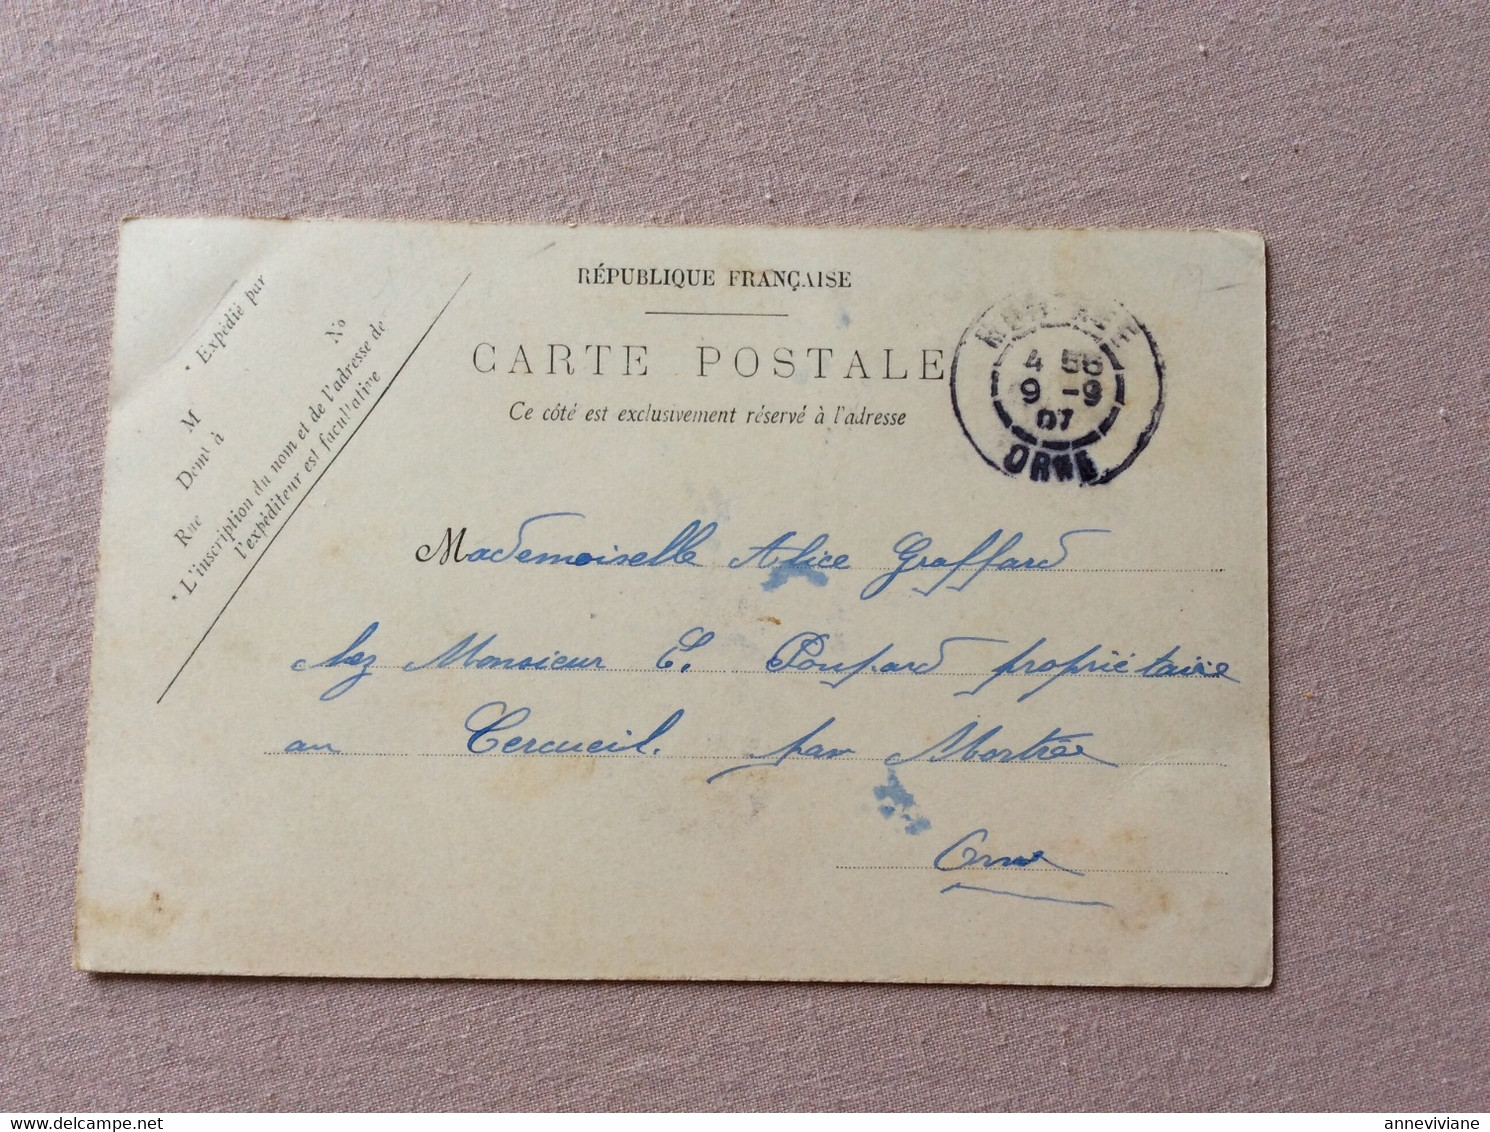 RÉPUBLIQUE FRANÇAISE
CARTE POSTALE
Ce côté est exclusivement réservé à l'adresse
* Expédié par
M No
Demt à
Rue
* L'inscription du nom et de l'adresse de
l'expéditeur est facultative
4 55
9 -9
07
ORNE
Mademoiselle Alice Graffard
chez Monsieur E. Poupard propriétaire
au Cercueil. par Mortrée
Orne
anneviviane